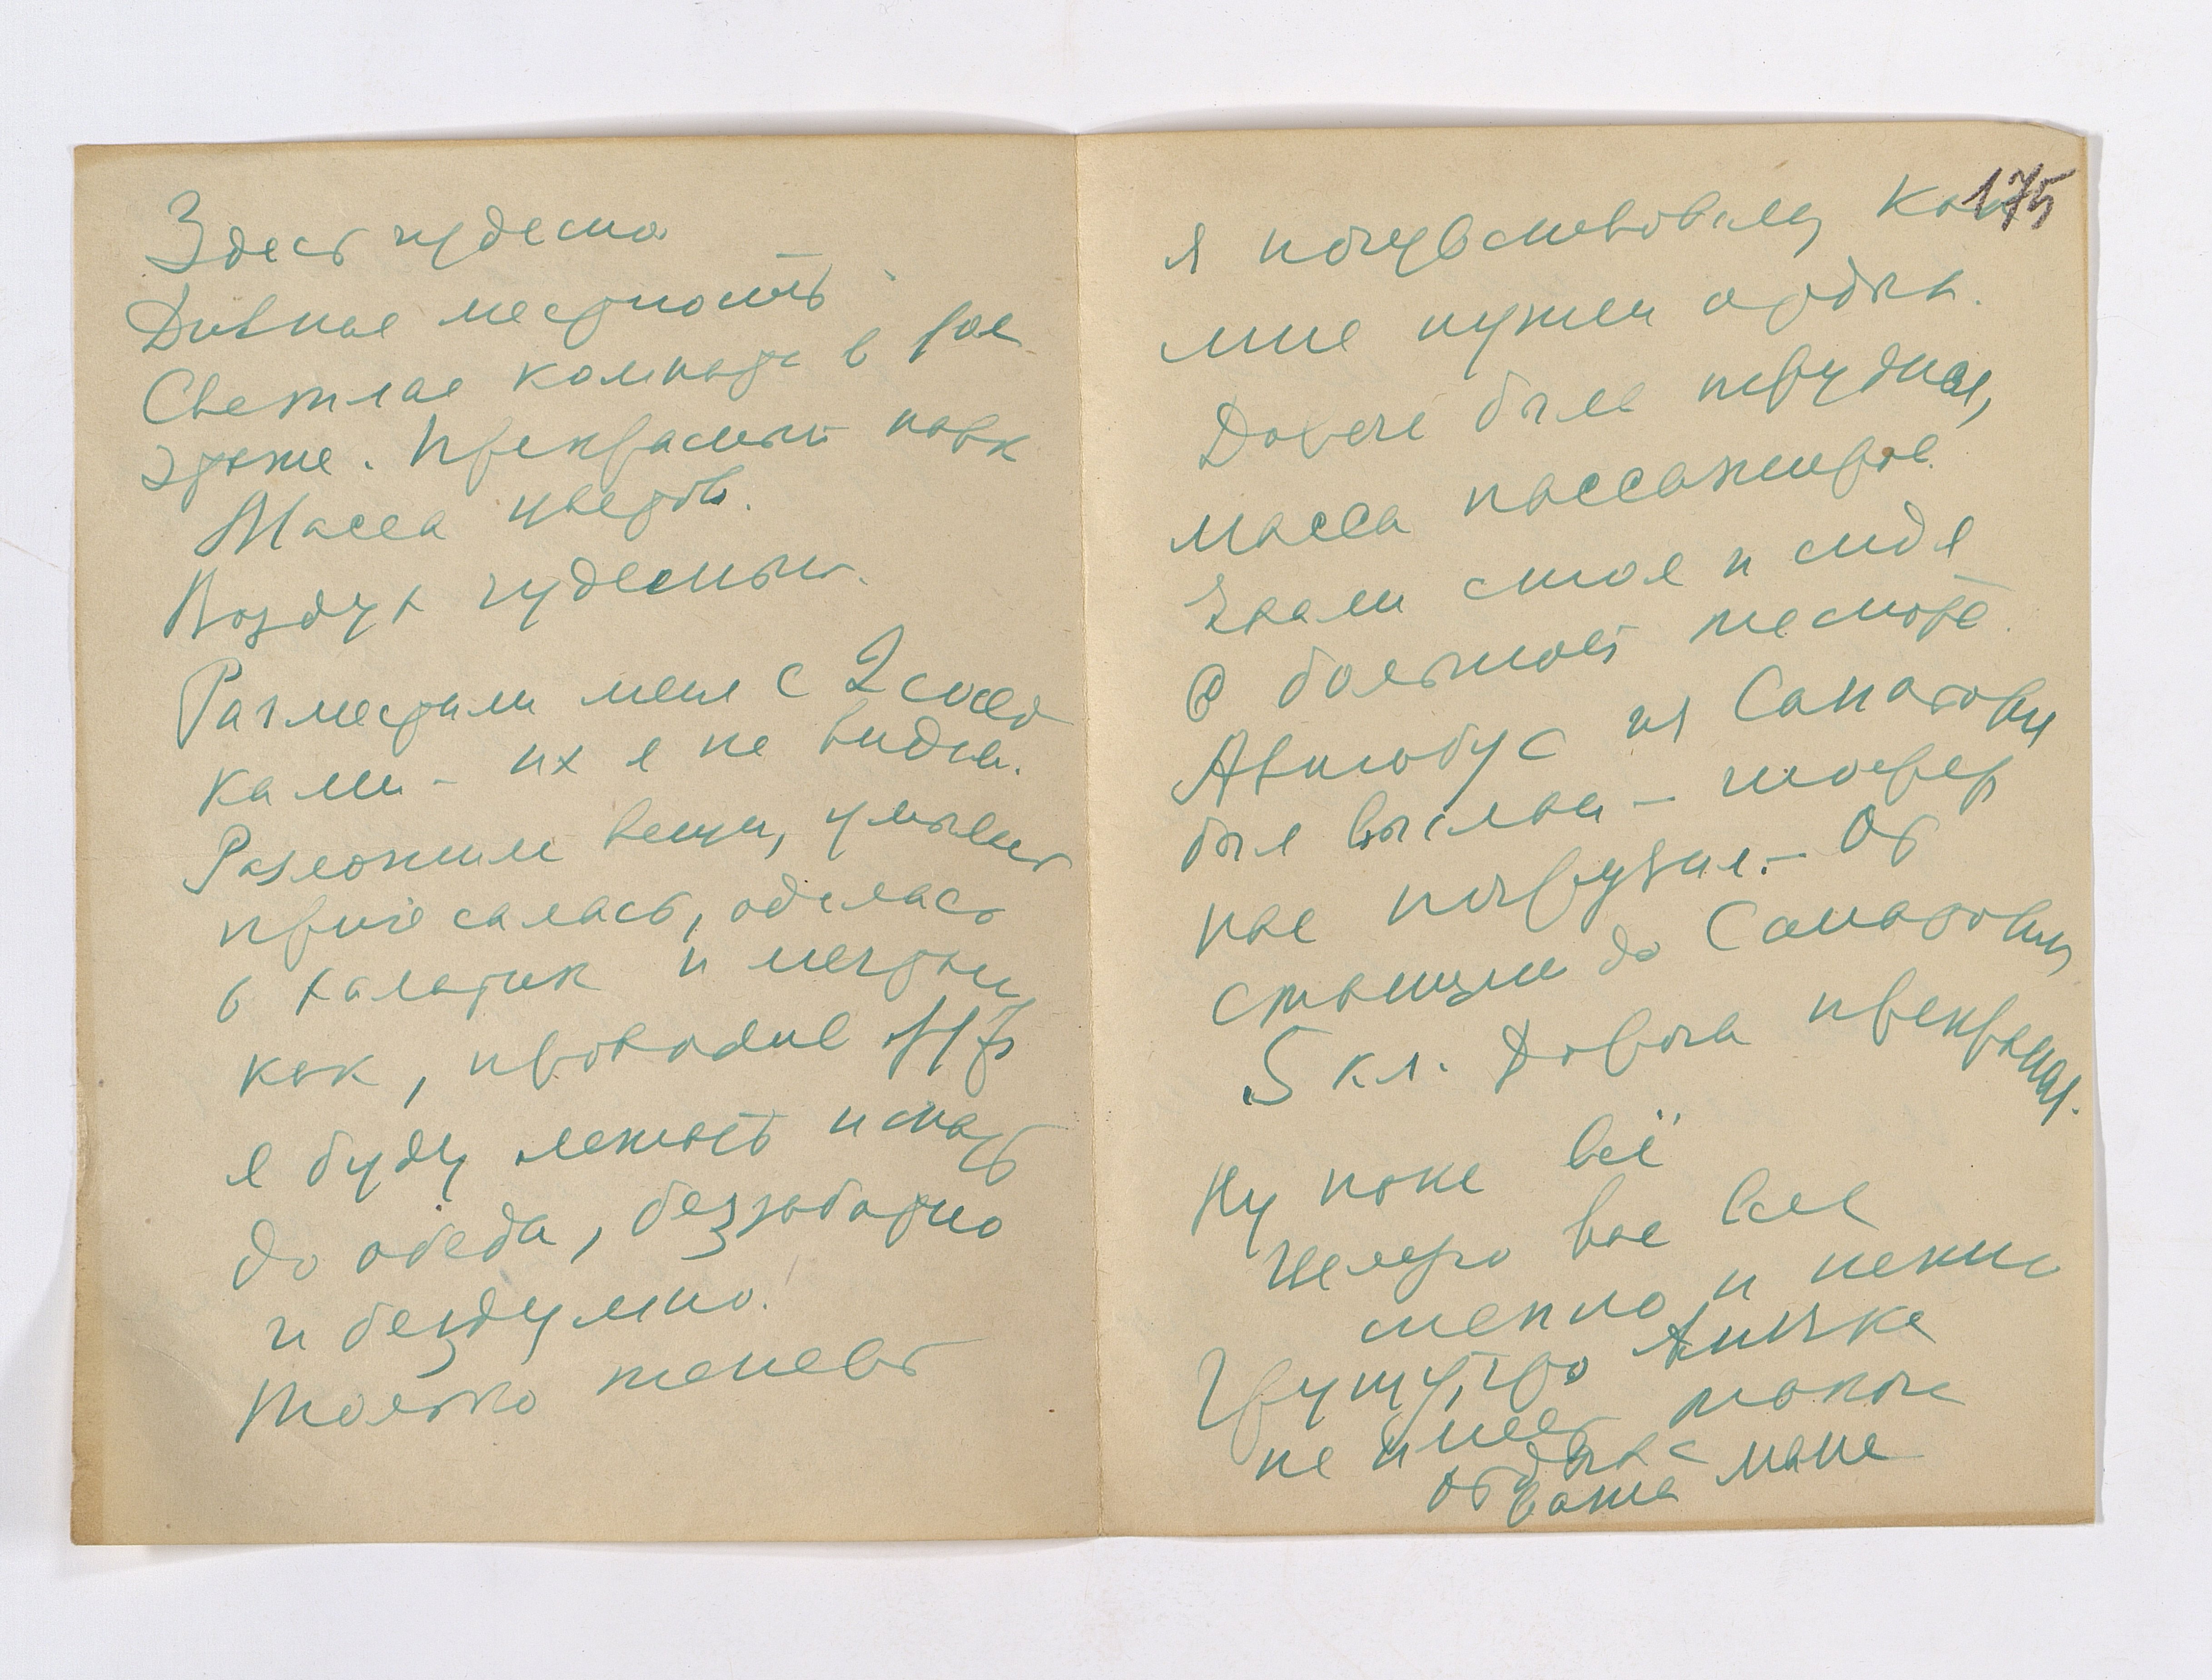 Здесь чудесно
Дивная местность
Светлая комната в 1ом
этаже. Прекрасный парк
Масса цветов.
Воздух чудесный.
Разместили меня с 2 сосед
ками – их я не видела.
Разложила вещи, умылась
причесалась, оделась
в халатик и мечтаю
как, проводив
я буду лежать и спать
до обеда, беззаботно
и бездумно.
Только теперь
175
я почувствовала, как
мне нужен отдых.
Дорога была трудная,
масса пассажиров
Ехали стоя и сидя
в большой тесноте.
Автобус из Санатория
был выслан – шофер
нас погрузил. – От
станции до Санатория
5 кл. Дорога прекрасная.
Ну пока всё
Целую вас всех
тепло и нежно
Грущу, что Анычка
не имеет такого
отдыха
ваша мама